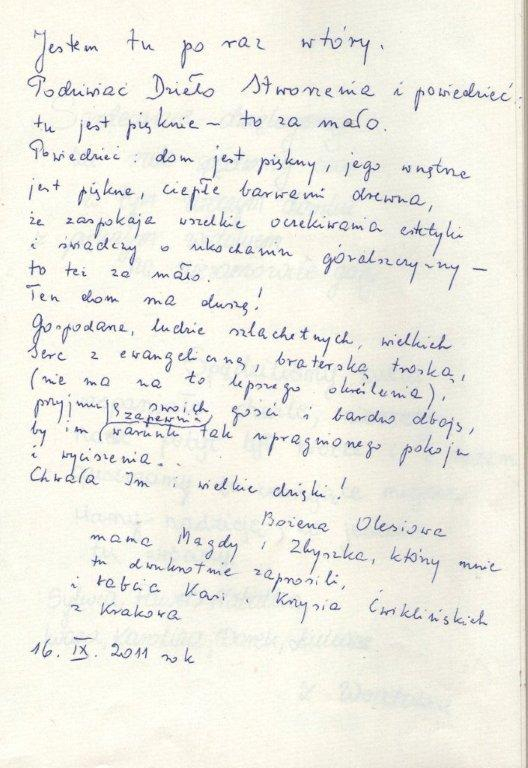 Jestem tu po raz wtóry.
Podziwiać Dzieło Stworzenia i powiedzieć:
tu jest pięknie – to za mało.
Powiedzieć: dom jest piękny, jego wnętrze
jest piękne, ciepłe barwami drewna,
że zaspokaja wszelkie oczekiwania estetyki
i świadczy o ukochaniu góralszczy-zny –
to też za mało.
Ten dom ma duszę!
Gospodarze, ludzie szlachetnych, wielkich
serc z ewangeliczną, braterską troską,
(nie ma na to lepszego określenia),
przyjmują swoich gości, bardzo dbają,
by im zapewnić warunki tak upragnionego pokoju
i wyciszenia...
Chwała Im i wielkie dzięki!
Bożena Olesiowa
mama Magdy i Zbyszka, który mnie
tu dwukrotnie zaprosili,
i babcia Kasi i Krzysia Ćwiklińskich
z Krakowa
16. IX. 2011 rok